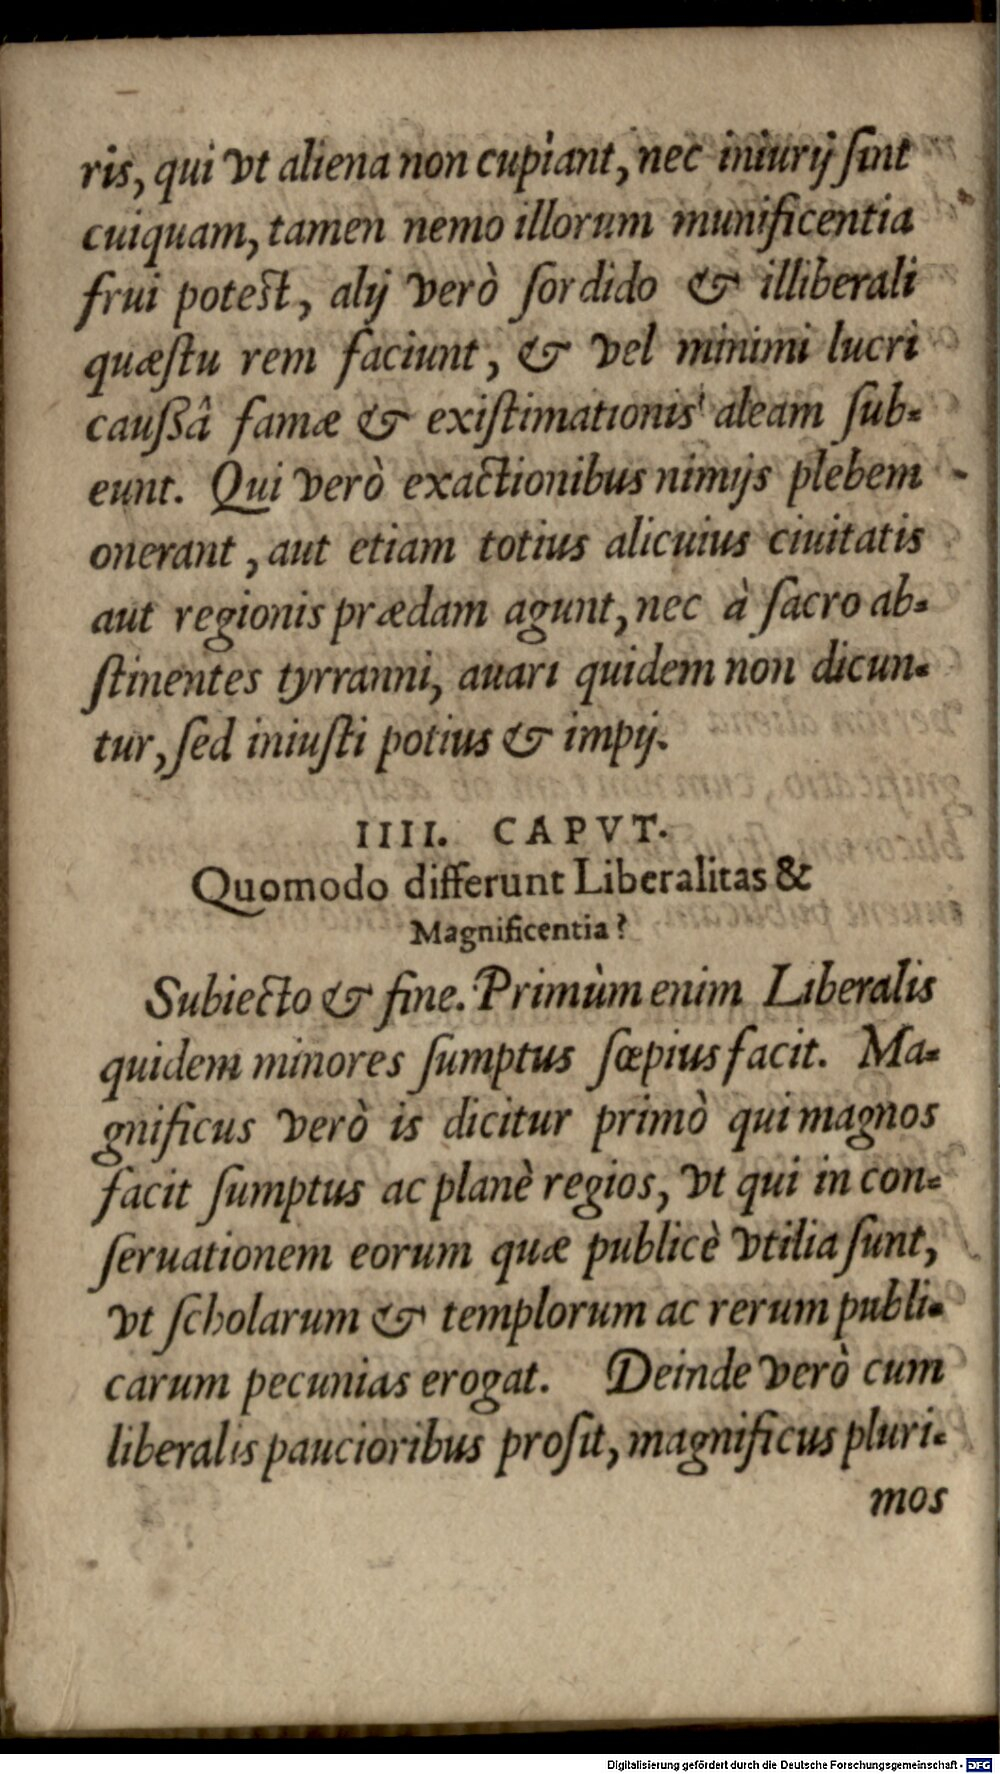 ris, qui vt aliena non cupiant, nec iniurij ſint
cuiquam, tamen nemo illorum munificentia
frui poteſt, alij verò ſordido & illiberali
quæſtu rem faciunt, & vel minimi lucri
cauſſâ famæ & exiſtimationis aleam ſub-
eunt. Qui verò exactionibus nimijs plebem
onerant, aut etiam totius alicuius ciuitatis
aut regionis prædam agunt, nec à ſacro ab-
ſtinentes tyrranni, auari quidem non dicun-
tur, ſed iniuſti potius & impij.
IIII. CAPVT.
Quomodo differunt Liberalitas &
Magnificentia?
Subiecto & fine. Primùm enim Liberalis
quidem minores ſumptus ſœpius facit. Ma-
gnificus verò is dicitur primò qui magnos
facit ſumptus ac planè regios, vt qui in con-
ſeruationem eorum quæ publicè vtilia ſunt,
vt ſcholarum & templorum ac rerum publi-
carum pecunias erogat. Deinde verò cum
liberalis paucioribus proſit, magnificus pluri-
mos
Digitalisierung gefördert durch die Deutsche Forschungsgemeinschaft - DFG